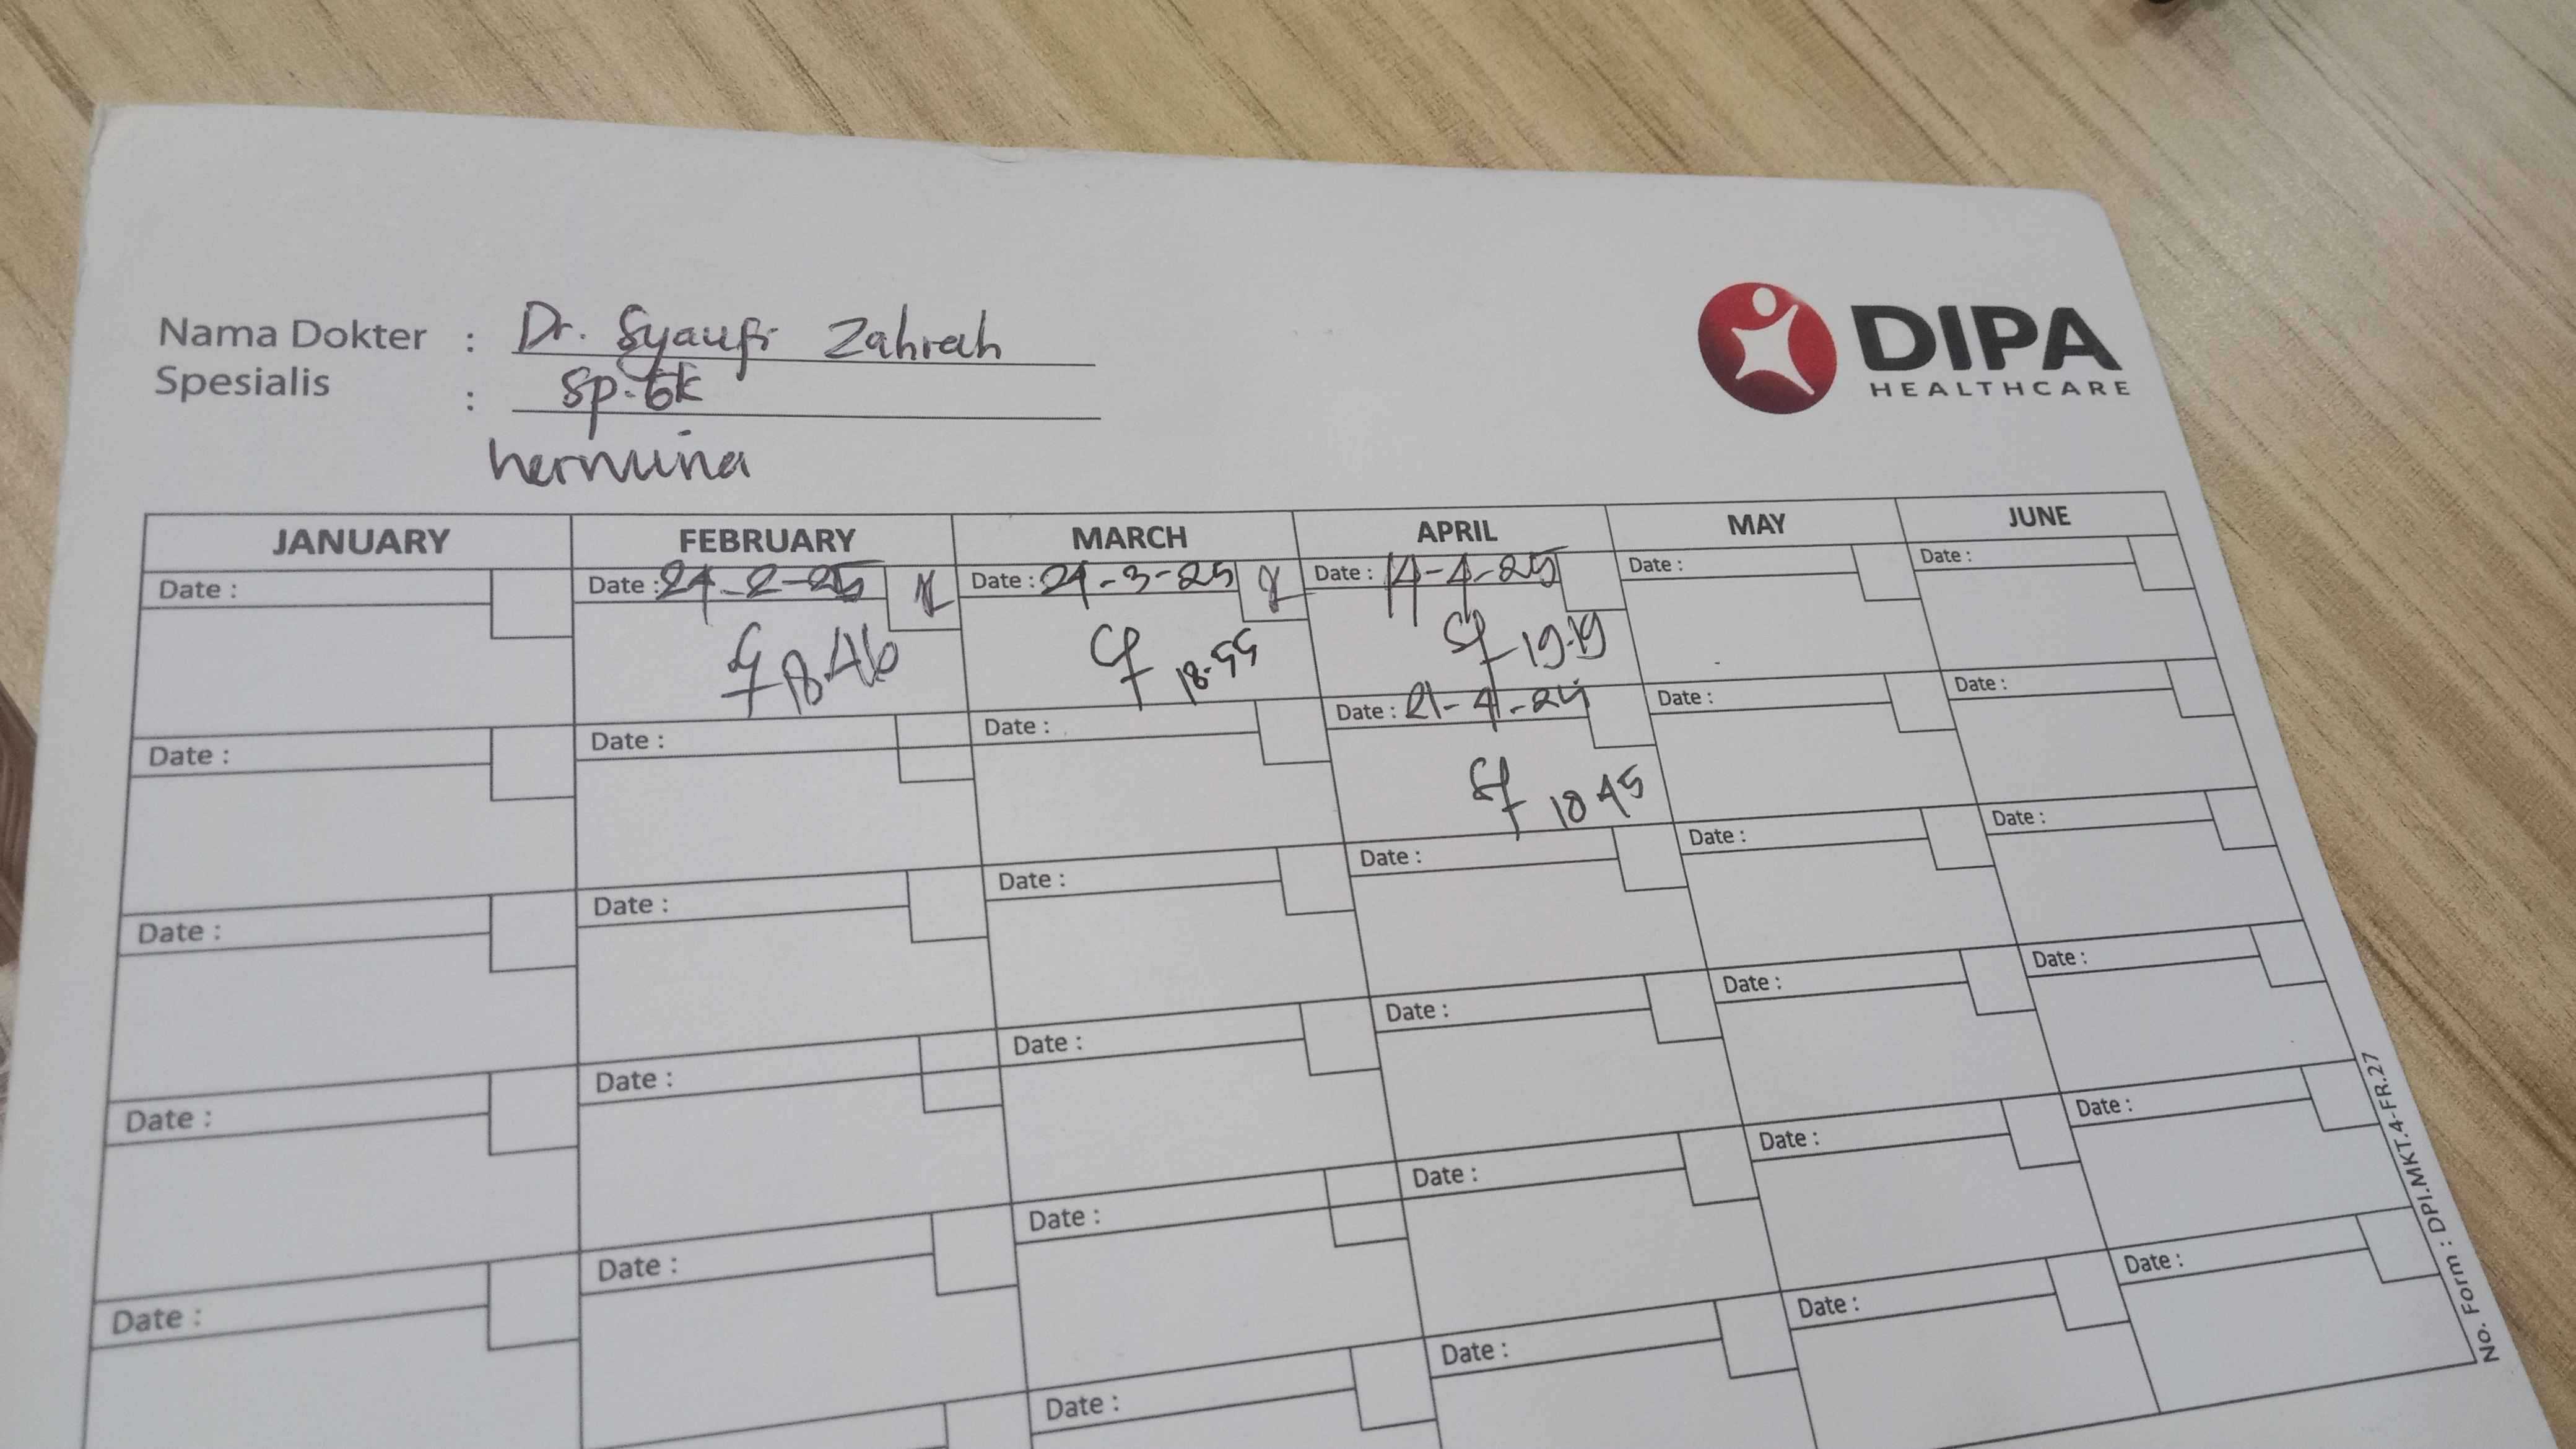 Nama Dokter : Dr. Syaufi Zahrah
Spesialis : Sp.
hermina
DIPA
HEALTHCARE
JANUARY FEBRUARY MARCH APRIL MAY JUNE
Date : Date : 24-2-25 Date : 24-3-25 Date : 14-4-25 Date : Date :
18.46 18.55 19.19
Date : Date : Date : Date : 21-4-25 Date : Date :
18 45
Date : Date : Date : Date : Date : Date :
Date : Date : Date : Date : Date : Date :
Date : Date : Date : Date : Date : Date :
Date : Date : Date : Date : Date :
No. Form : DPI.MKT.4-FR.27